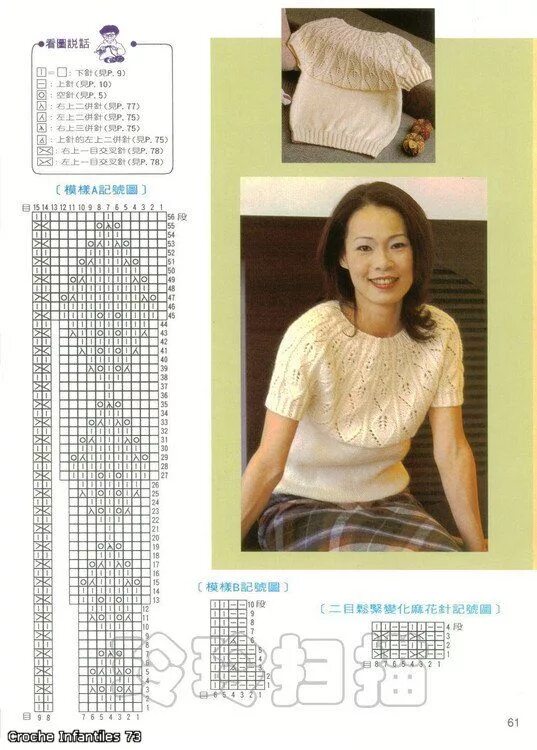 看圖説話
|=□：下針(見P. 9)
—：上針(見P. 10)
○：空針(見P. 5)
：右上二併針(見P. 77)
：左上二併針(見P. 75)
：右上三併針(見P. 75)
：上針的左上二併針(見P. 75)
：右上一目交叉針(見P. 78)
：左上一目交叉針(見P. 78)
〔模樣A記號圖〕
目 15 14 13 12 11 10 9 8 7 6 5 4 3 2 1
56 段
55
54
53
52
51
50
49
48
47
46
45
44
43
42
41
40
39
38
37
36
35
34
33
32
31
30
29
28
27
26
25
24
23
22
21
20
19
18
17
16
15
14
13
12
11
10
9
8
7
6
5
4
3
2
1
目 9 8 7 6 5 4 3 2 1
〔模樣B記號圖〕
10 段
9
8
7
6
5
4
3
2
1
目 6 5 4 3 2 1
〔二目鬆緊變化麻花針記號圖〕
4 段
3
2
1
目 8 7 6 5 4 3 2 1
掃描
61
Croche Infantiles 73